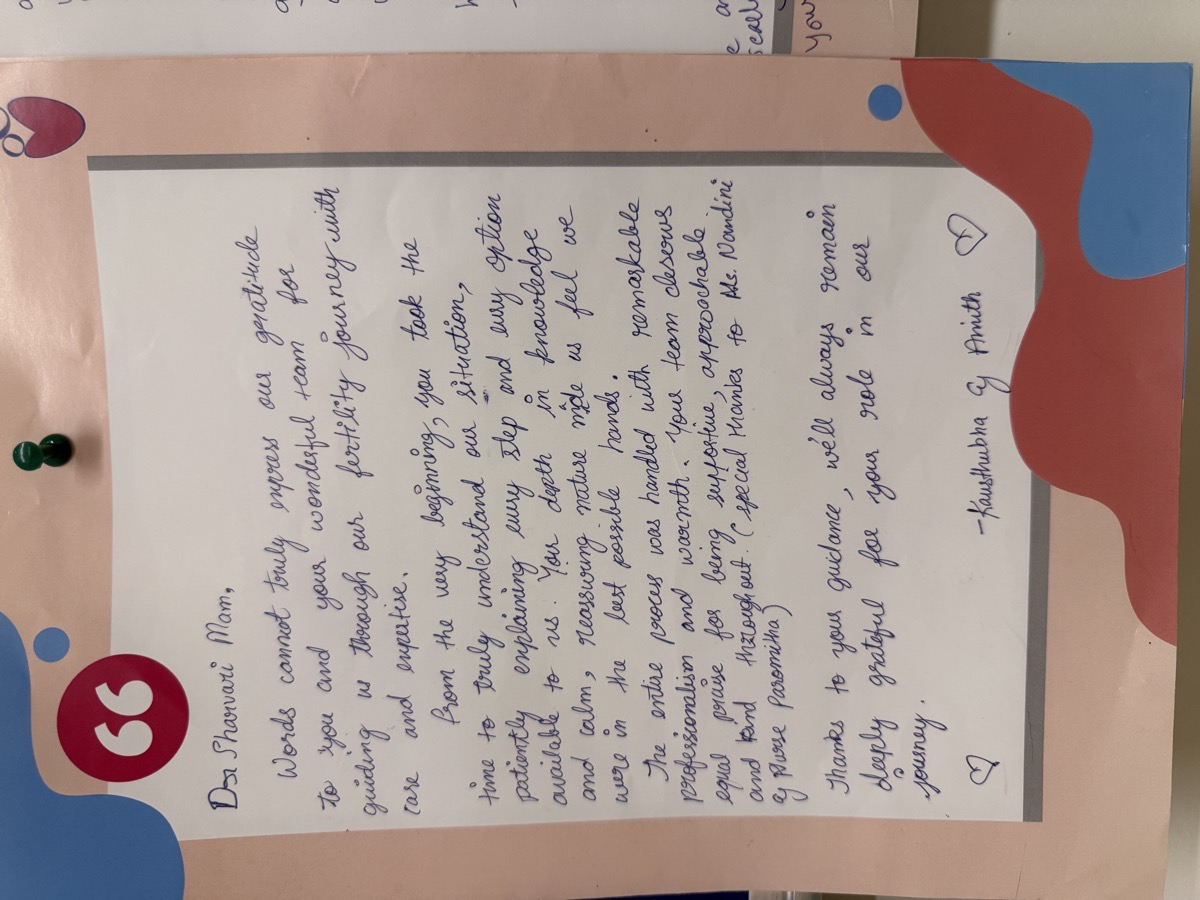 Dr Sharvari Mam,
Words cannot truly express our gratitude
to you and your wonderful team for
guiding us through our fertility journey with
care and expertise.
From the very beginning, you took the
time to truly understand our situation,
patiently explaining every step and every option
available to us. Your depth in knowledge
and calm, reassuring nature made us feel we
were in the best possible hands.
The entire process was handled with remarkable
professionalism and warmth. Your team deserves
equal praise for being supportive, approachable
and kind throughout. (special thanks to Ms. Nandini
& Nurse Paromitha)
Thanks to your guidance, we'll always remain
deeply grateful for your role in our
journey.
- Kausthubha & Amith